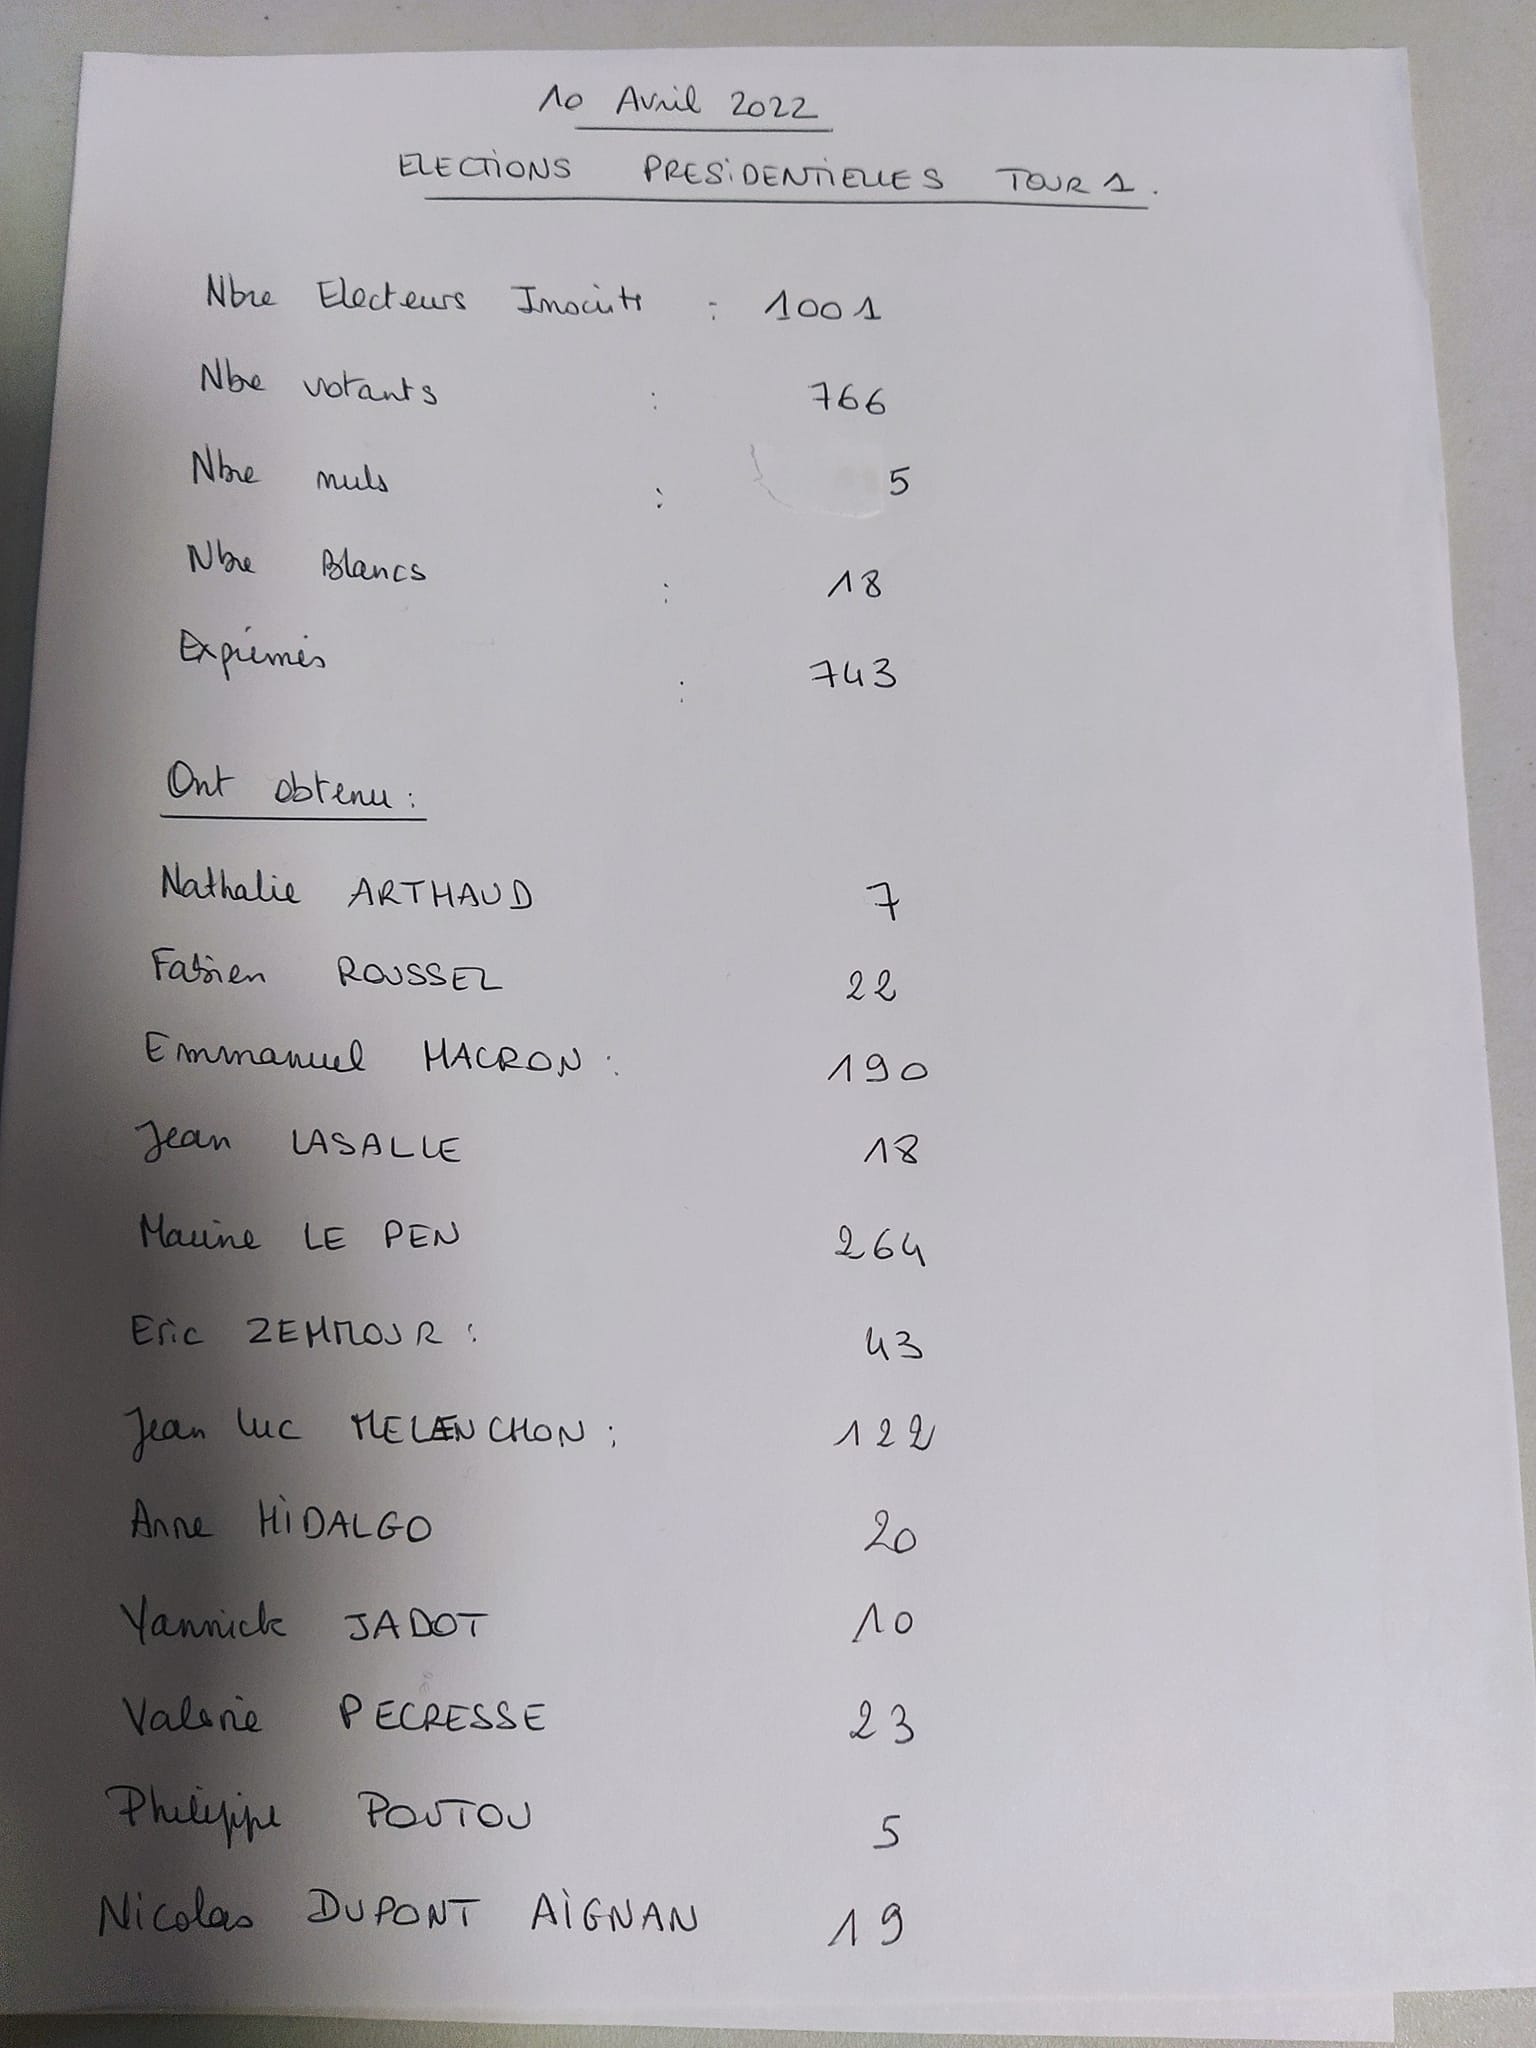 10 Avril 2022
ELECTIONS PRESIDENTIELLES TOUR 1.
Nbre Electeurs Inscrits : 1001
Nbre votants : 766
Nbre nuls : 5
Nbre Blancs : 18
Exprimés : 743
Ont obtenu :
Nathalie ARTHAUD 7
Fabien ROUSSEL 22
Emmanuel MACRON : 190
Jean LASALLE 18
Marine LE PEN 264
Eric ZEMMOUR : 43
Jean Luc MELENCHON : 122
Anne HIDALGO 20
Yannick JADOT 10
Valérie PECRESSE 23
Philippe POUTOU 5
Nicolas DUPONT AIGNAN 19